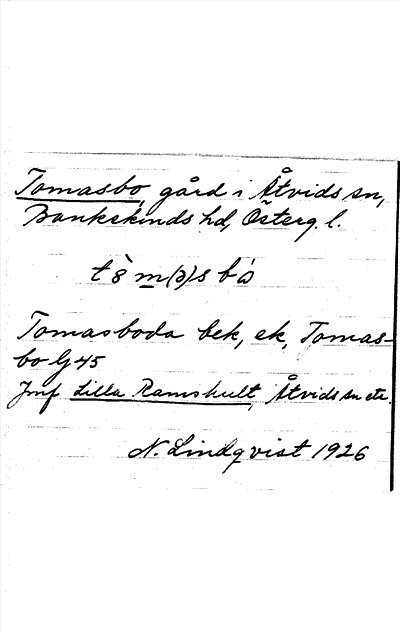 Tomasbo, gård i Åtvids sn,
Bankekinds hd, Österg. l.
t m(ə)s b
Tomasboda bek, ek, Tomas-
bo lj 45
Jmf Lilla Ramshult, Åtvids sn etc.
N. Lindqvist 1926